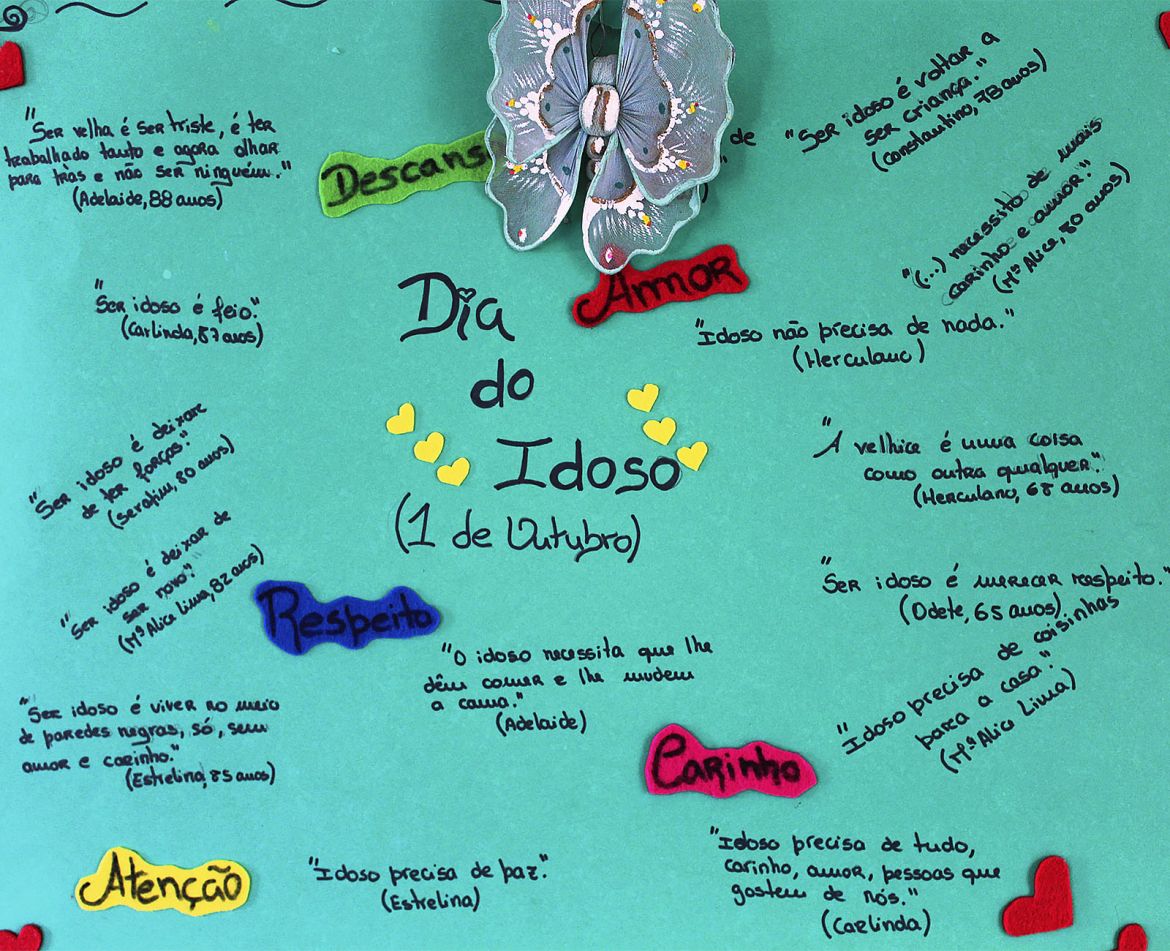 "Ser velha é ser triste, é ter
trabalhado tanto e agora olhar
para trás e não ser ninguém."
(Adelaide, 88 anos)
Descans
de
"Ser idoso é voltar a
ser criança."
(Constantino, 78 anos)
"(...) necessito de mais
carinho e amor."
(Mª Alice, 80 anos)
Amor
"Ser idoso é feio."
(Carlinda, 87 anos)
Dia
do
Idoso
(1 de Outubro)
"Idoso não precisa de nada."
(Herculano)
"Ser idoso é deixar
de ter forças."
(Serafim, 80 anos)
"A velhice é uma coisa
como outra qualquer."
(Herculano, 68 anos)
"Ser idoso é deixar de
ser novo."
(Mª Alice Lima, 82 anos)
Respeito
"Ser idoso é merecer respeito."
(Odete, 65 anos)
"O idoso necessita que lhe
dêm comer e lhe mudem
a cama."
(Adelaide)
"Idoso precisa de coisinhas
para a casa."
(Mª Alice Lima)
"Ser idoso é viver no meio
de paredes negras, só, sem
amor e carinho."
(Estrelina, 85 anos)
Carinho
Atenção
"Idoso precisa de paz."
(Estrelina)
"Idoso precisa de tudo,
carinho, amor, pessoas que
gostem de nós."
(Carlinda)